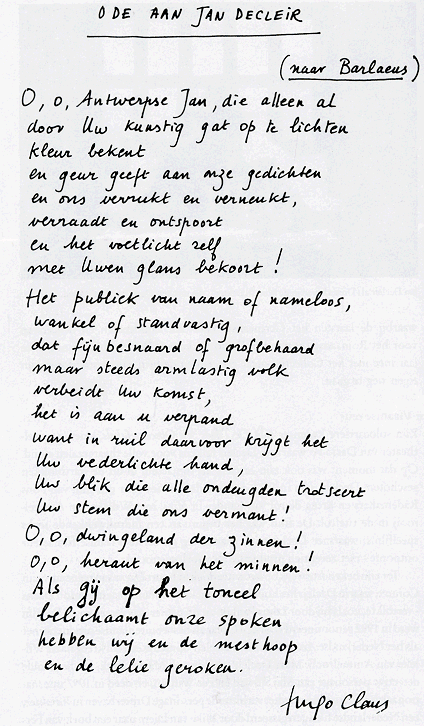 ODE AAN JAN DECLEIR
(naar Barlaeus)
O, o, Antwerpse Jan, die alleen al
door Uw kunstig gat op te lichten
kleur bekent
en geur geeft aan onze gedichten
en ons verrukt en verneukt,
verraadt en ontspoort
en het voetlicht zelf
met Uwen glans bekoort!
Het publiek van naam of nameloos,
wankel of standvastig,
dat fijnbesnaard of grofbehaard
maar steeds armlastig volk
verbeidt Uw komst,
het is aan u verpand
want in ruil daarvoor krijgt het
Uw vederlichte hand,
Uw blik die alle ondeugden trotseert
Uw stem die ons vermant!
O, o, dwingeland der zinnen!
O, o, heraut van het minnen!
Als gij op het toneel
belichaamt onze spoken
hebben wij en de mesthoop
en de lelie geroken.
Hugo Claus